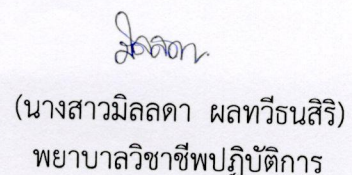 มิลลดา
(นางสาวมิลลดา ผลทวีธนสิริ)
พยาบาลวิชาชีพปฏิบัติการ